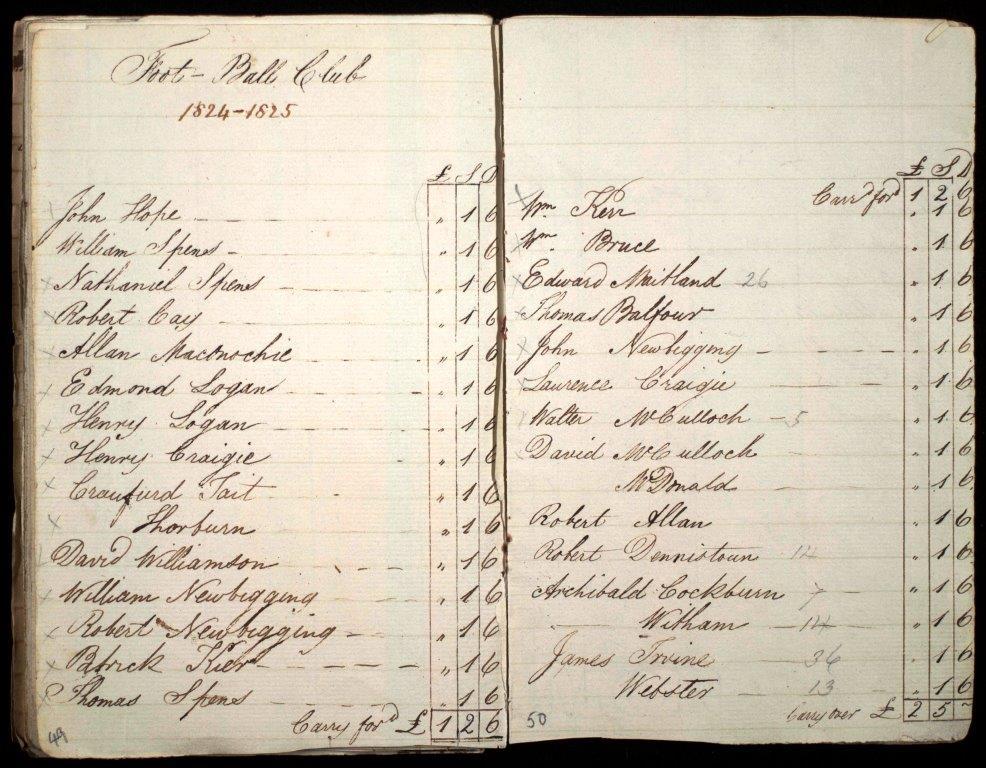 Foot - Ball Club
1824-1825
£ S D
John Hope " 1 6
William Spens " 1 6
Nathaniel Spens " 1 6
Robert Cay " 1 6
Allan Maconochie " 1 6
Edmond Logan " 1 6
Henry Logan " 1 6
Henry Craigie " 1 6
Craufurd Tait " 1 6
Thorburn " 1 6
David Williamson " 1 6
William Newbigging " 1 6
Robert Newbigging " 1 6
Patrick Kier " 1 6
Thomas Spens " 1 6
Carry for^d £ 1 2 6
49
£ S D
Carr^d for^d 1 2 6
W^m Kerr " 1 6
W^m Bruce " 1 6
Edward Maitland 26 " 1 6
Thomas Balfour " 1 6
John Newbigging " 1 6
Laurence Craigie " 1 6
Walter McCulloch - 5 " 1 6
David McCulloch " 1 6
McDonald " 1 6
Robert Allan " 1 6
Robert Dennistoun 14 " 1 6
Archibald Cockburn 7 " 1 6
Witham 14 " 1 6
James Irvine 36 " 1 6
Webster 13 " 1 6
Carry over £ 2 5 "
50